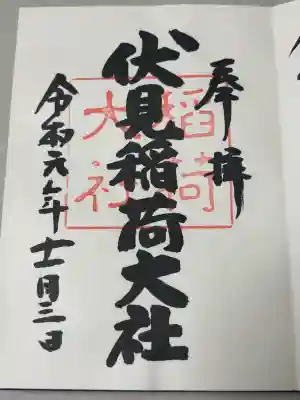 奉拝
伏見稲荷大社
稲荷
大社
令和元年十二月三日